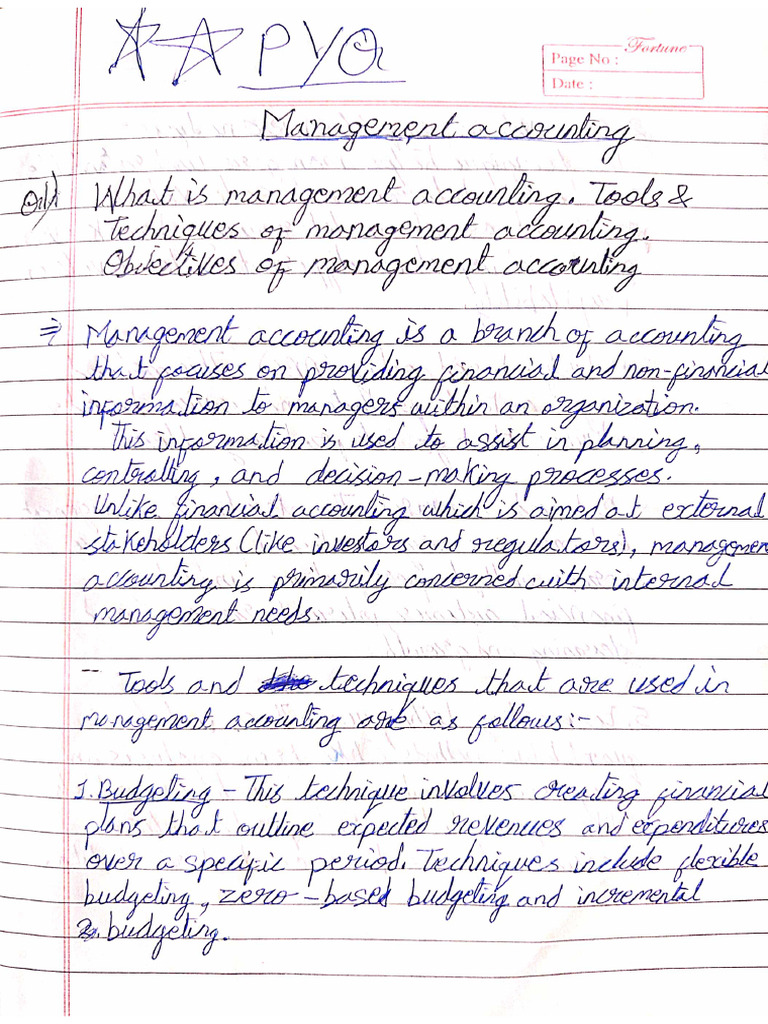 PYQ
Fortune
Page No :
Date :
Management accounting
Q1) What is management accounting. Tools &
Techniques of management accounting.
Objectives of management accounting
⇒ Management accounting is a branch of accounting
that focuses on providing financial and non-financial
information to managers within an organization.
This information is used to assist in planning,
controlling, and decision-making processes.
Unlike financial accounting which is aimed at external
stakeholders (like investors and regulators), managemen
accounting is primarily concerned with internal
management needs.
-- Tools and techniques that are used in
management accounting are as follows:-
1. Budgeting - This technique involves creating financial
plans that outline expected revenues and expenditures
over a specific period. Techniques include flexible
budgeting, zero-based budgeting and incremental
2. budgeting.